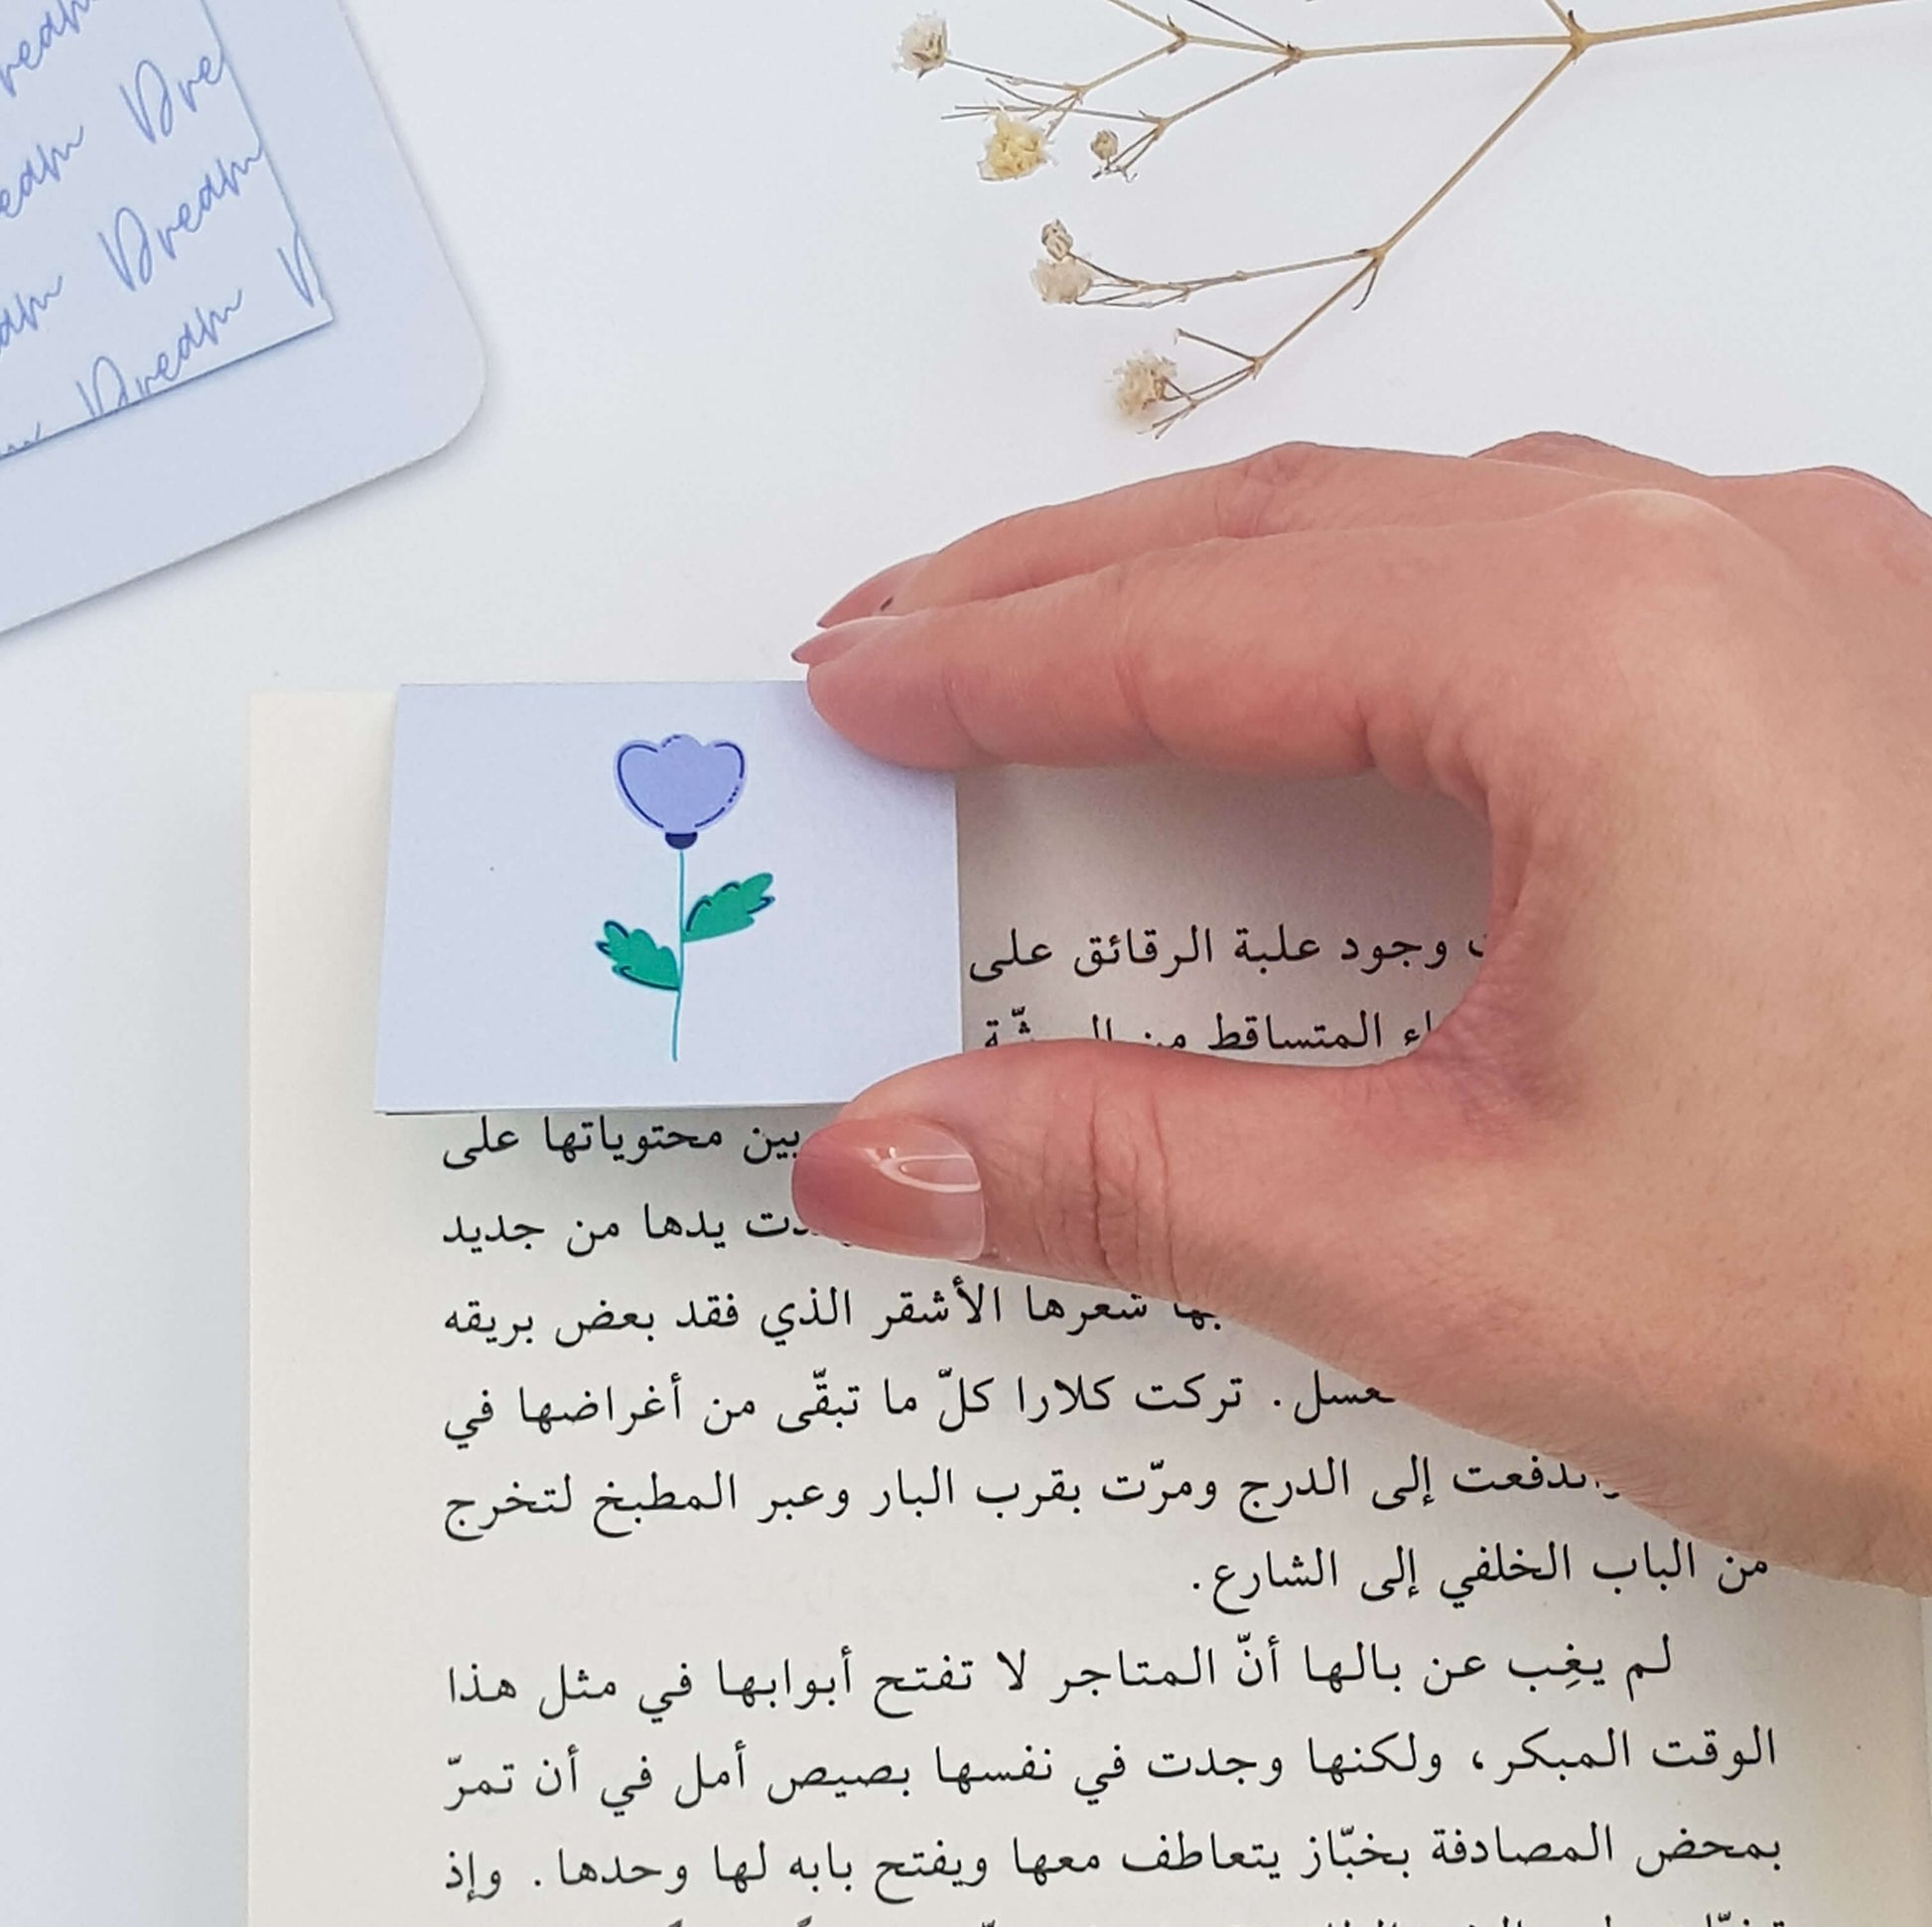 Dream
Dream
Dream
Dream
وجود علبة الرقائق على
المتساقط من
بين محتوياتها على
يدها من جديد
شعرها الأشقر الذي فقد بعض بريقه
تركت كلارا كلّ ما تبقّى من أغراضها في
إلى الدرج ومرّت بقرب البار وعبر المطبخ لتخرج
من الباب الخلفي إلى الشارع.
لم يغِب عن بالها أنّ المتاجر لا تفتح أبوابها في مثل هذا
الوقت المبكر، ولكنها وجدت في نفسها بصيص أمل في أن تمرّ
بمحض المصادفة بخبّاز يتعاطف معها ويفتح بابه لها وحدها. وإذ